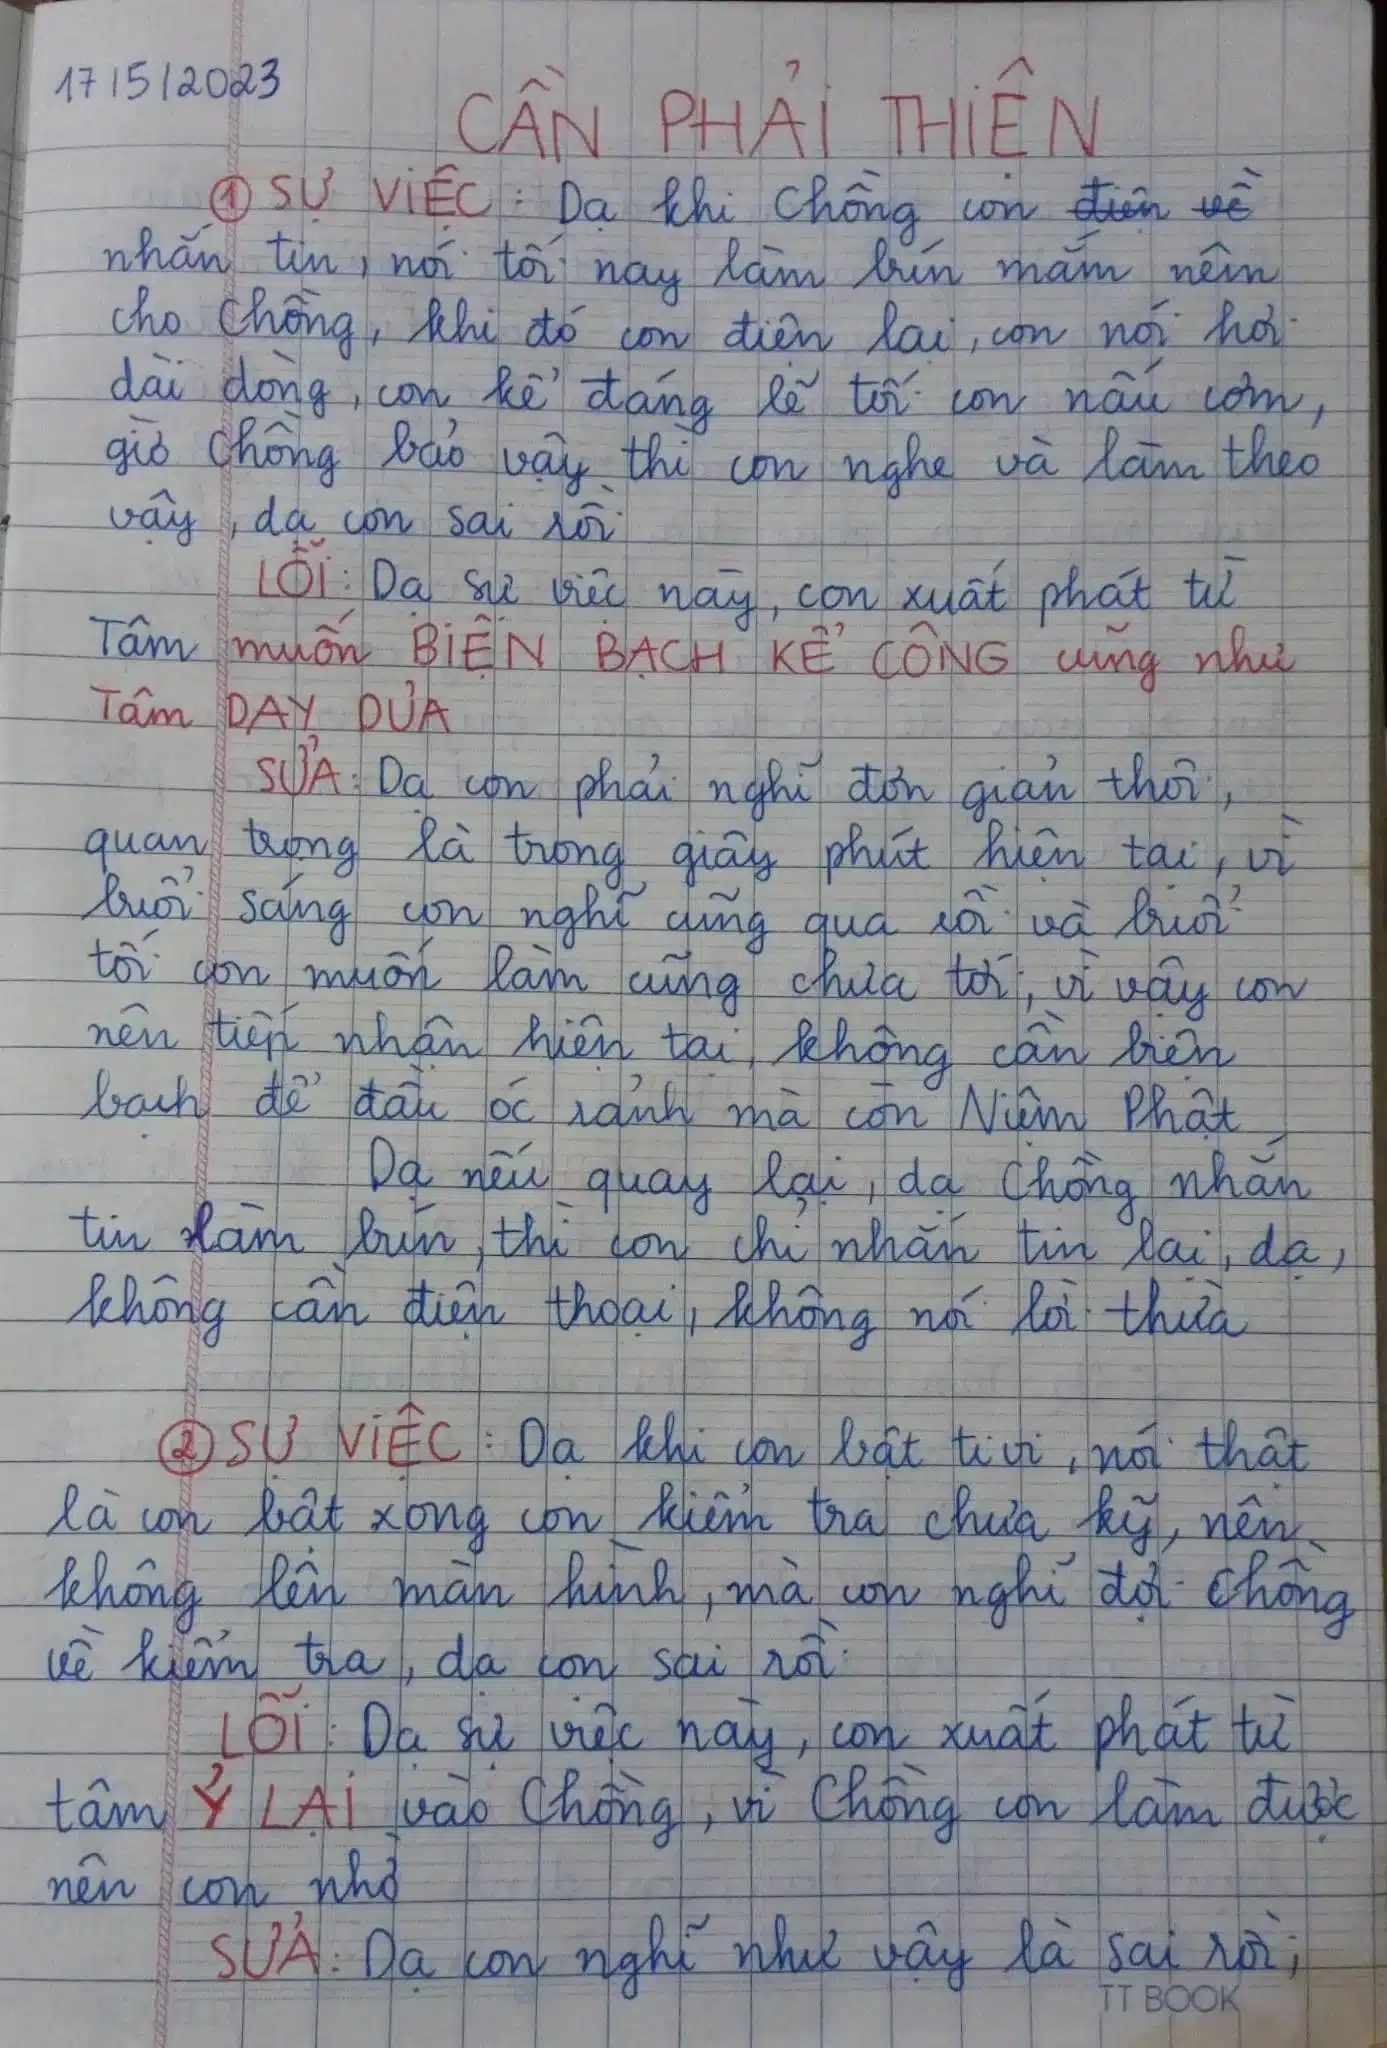 17/5/2023
CẦN PHẢI THIỆN
① SỰ VIỆC: Dạ khi Chồng con điện về
nhắn tin, nói tối nay làm bún mắm nêm
cho Chồng, khi đó con điện lại, con nói hơi
dài dòng, con kể đáng lẽ tối con nấu cơm,
giờ Chồng bảo vậy thì con nghe và làm theo
vậy, dạ con sai rồi
LỖI: Dạ sự việc này, con xuất phát từ
Tâm muốn BIỆN BẠCH KỂ CÔNG cũng như
Tâm DAY DƯA
SỬA: Dạ con phải nghĩ đơn giản thôi,
quan trọng là trong giây phút hiện tại, vì
buổi sáng con nghĩ cũng qua rồi và buổi
tối con muốn làm cũng chưa tới, vì vậy con
nên tiếp nhận hiện tại, không cần biện
bạch để đầu óc rảnh mà còn Niệm Phật
Dạ nếu quay lại, dạ Chồng nhắn
tin làm bún, thì con chỉ nhắn tin lại, dạ,
không cần điện thoại, không nói lời thừa
② SỰ VIỆC: Dạ khi con bật ti vi, nói thật
là con bật xong con kiểm tra chưa kỹ, nên
không lên màn hình, mà con nghĩ đợi Chồng
về kiểm tra, dạ con sai rồi
LỖI: Dạ sự việc này, con xuất phát từ
tâm Ỷ LẠI vào Chồng, vì Chồng con làm được
nên con nhờ
SỬA: Dạ con nghĩ như vậy là sai rồi,
TT BOOK